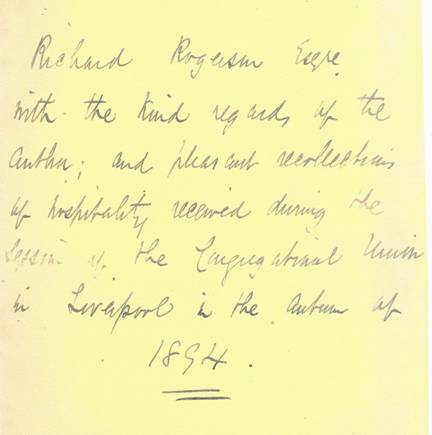 Richard Rogerson Esqre
with the kind regards of the
Author; and pleasant recollections
of hospitality received during the
Session of the Congregational Union
in Liverpool in the autumn of
1894.